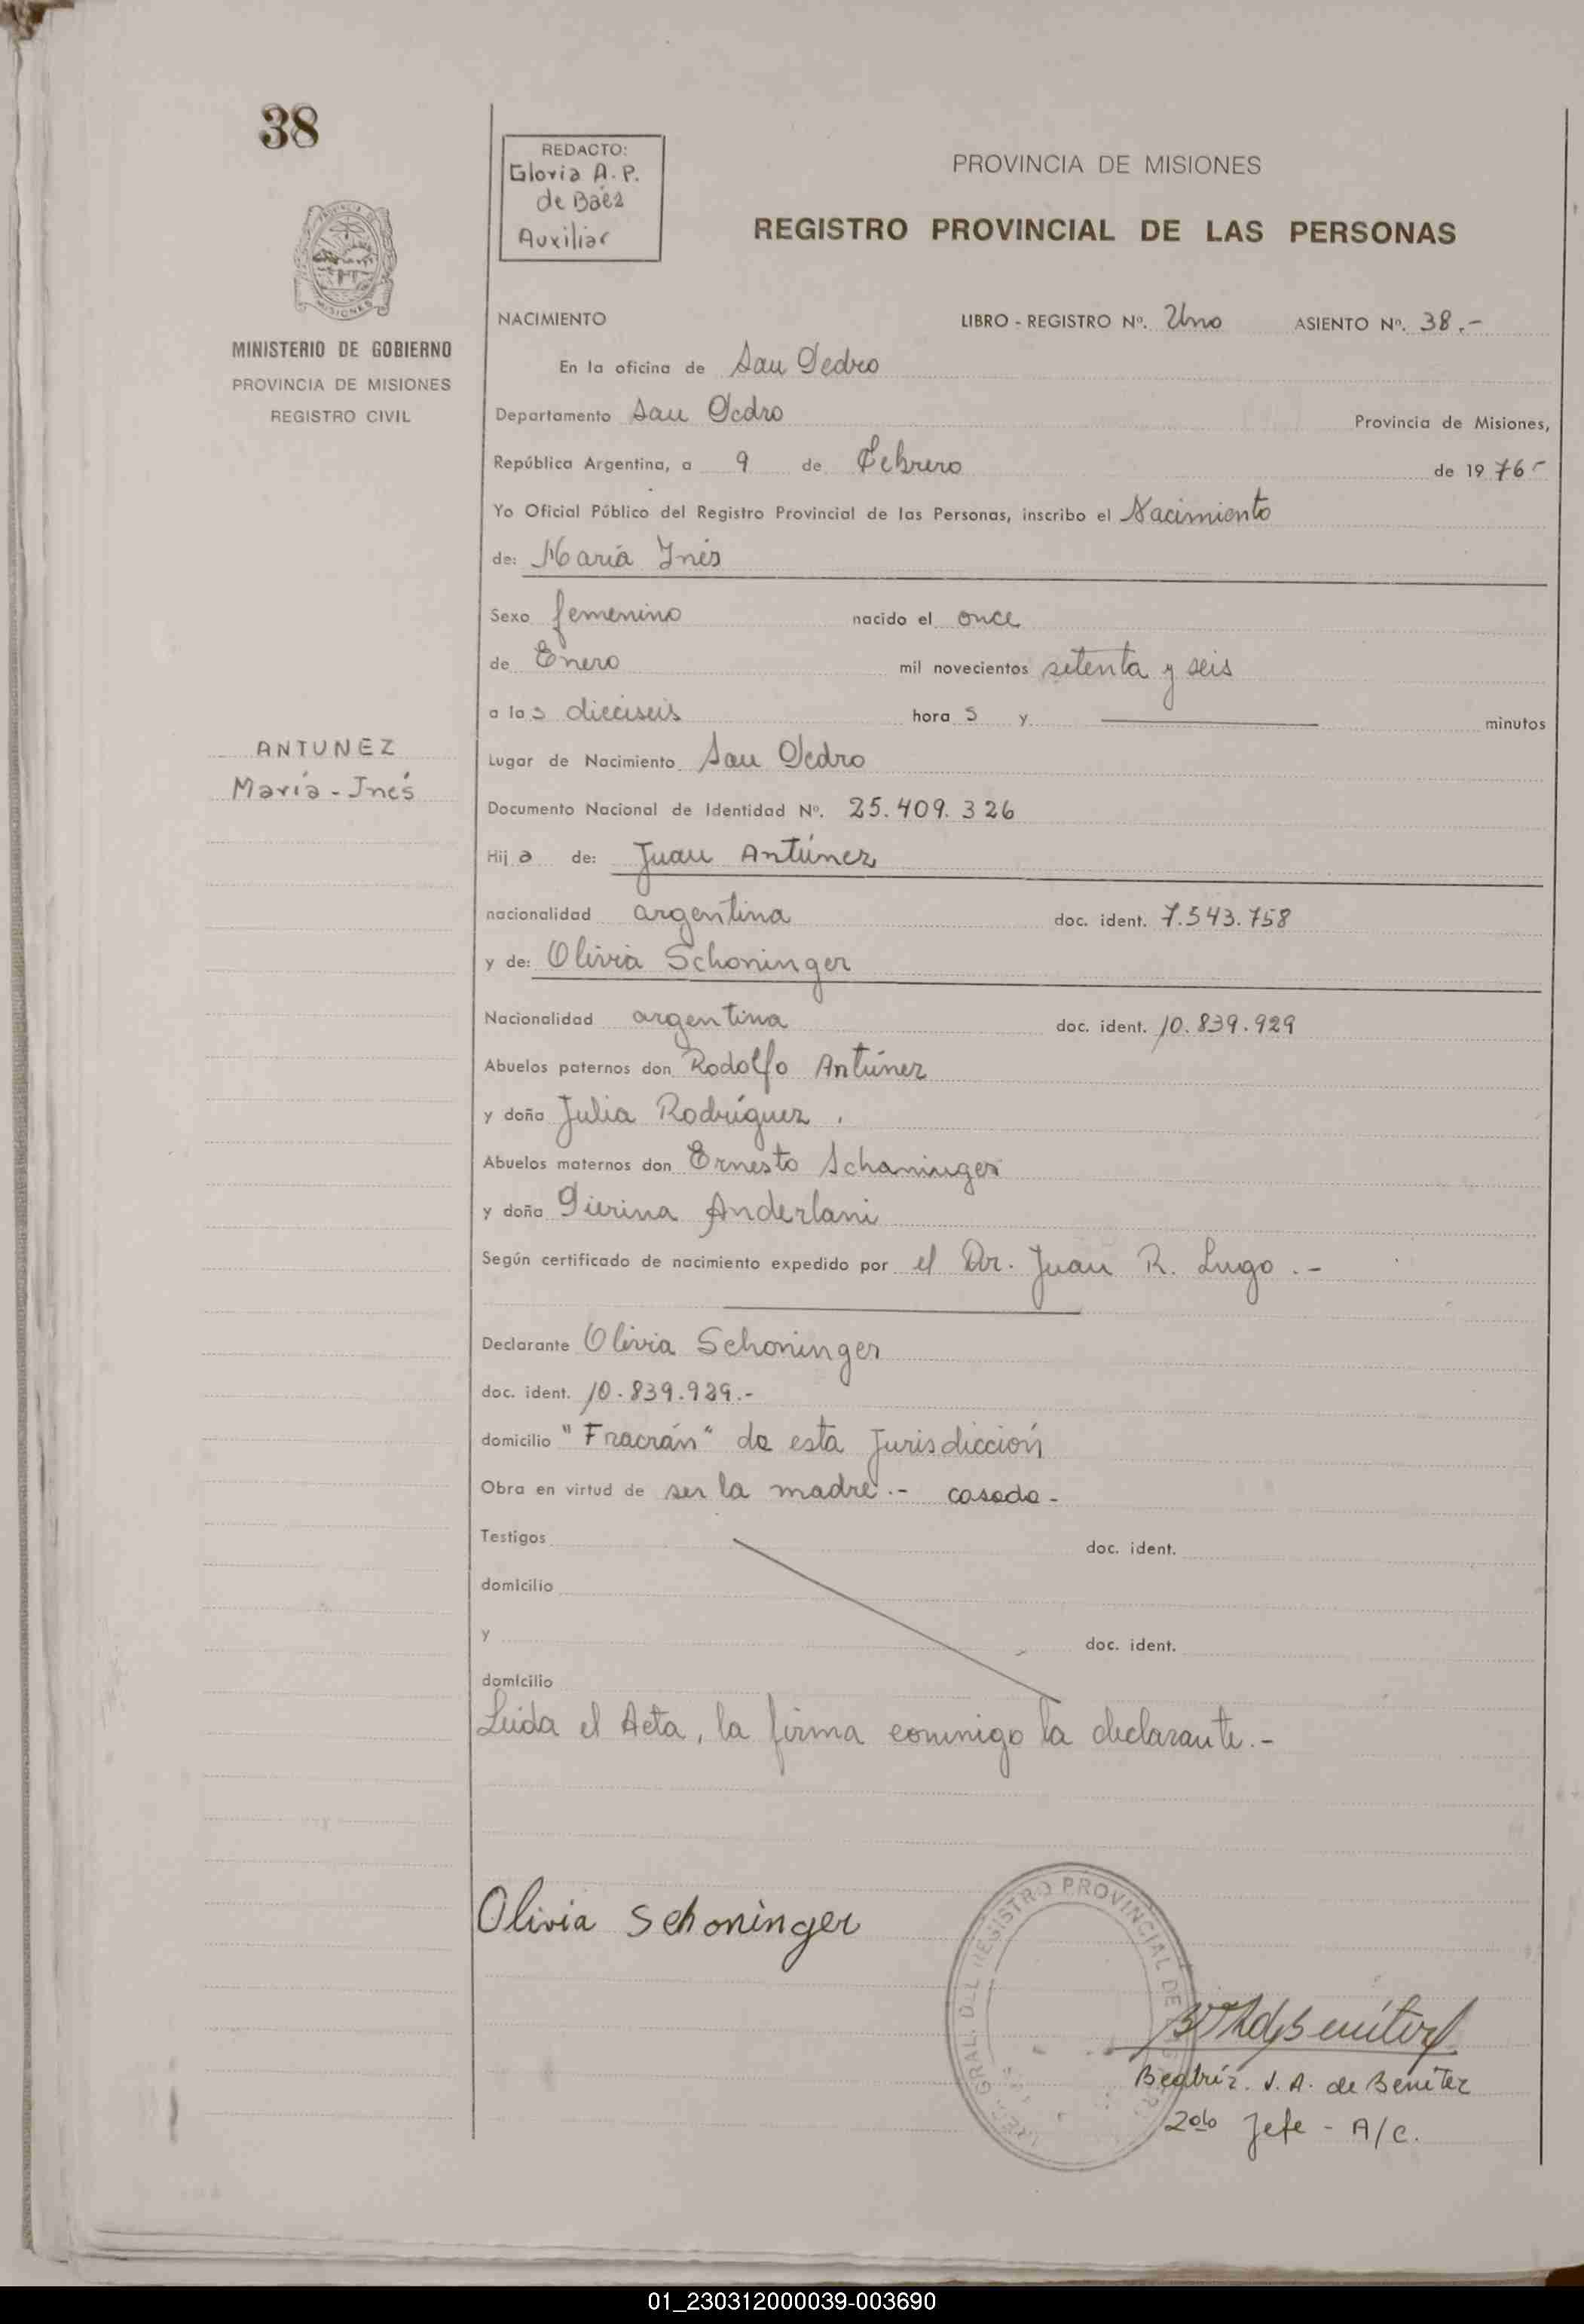 38
REDACTO:
Gloria A. P.
de Báez
Auxiliar
PROVINCIA DE MISIONES
REGISTRO PROVINCIAL DE LAS PERSONAS
MISIONES
MINISTERIO DE GOBIERNO
PROVINCIA DE MISIONES
REGISTRO CIVIL
NACIMIENTO LIBRO - REGISTRO Nº. Uno ASIENTO Nº. 38.-
En la oficina de San Pedro
Departamento San Pedro Provincia de Misiones,
República Argentina, a 9 de Febrero de 1976-
Yo Oficial Público del Registro Provincial de las Personas, inscribo el Nacimiento
de: María Inés
Sexo femenino nacido el once
de Enero mil novecientos setenta y seis
a las dieciseis hora s y minutos
ANTUNEZ
María-Inés
Lugar de Nacimiento San Pedro
Documento Nacional de Identidad Nº. 25.409.326
Hija de: Juan Antúnez
nacionalidad argentina doc. ident. 7.543.758
y de: Olivia Schoninger
Nacionalidad argentina doc. ident. 10.839.929
Abuelos paternos don Rodolfo Antúnez
y doña Julia Rodríguez.
Abuelos maternos don Ernesto Schaninger
y doña Pierina Anderlani
Según certificado de nacimiento expedido por el Dr. Juan R. Lugo.-
Declarante Olivia Schoninger
doc. ident. 10.839.929.-
domicilio "Fracrán" de esta Jurisdicción
Obra en virtud de ser la madre.- casada-
Testigos doc. ident.
domicilio
y doc. ident.
domicilio
Leida el Acta, la firma conmigo la declarante.-
Olivia Schoninger
GRAL. DEL REGISTRO PROVINCIAL DE
Beatríz. J. A. de Benítez
2do Jefe - A/C.
01_230312000039-003690